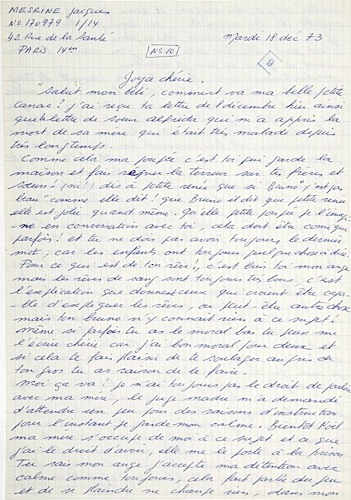 MESRINE Jacques
No 170979 1/14
42 Rue de la Santé
PARIS 14em
Mardi 18 dec 73
No 10
Joya chérie.
Salut mon bébé, comment va ma belle petite
canac? j'ai reçu ta lettre du 8 decembre hier ainsi
que la lettre de soeur alfreda qui m'a appris la
mort de sa mère qui était très malade depuis
très longtemps.
Comme cela ma poupée c'est toi qui garde la
maison et fais régner la terreur sur tes frères et
soeurs! dis à petite renée que si Bruno c'est pas
beau comme elle dit! que Bruno et dit que petite renée
elle est jolie quand même. Qu'elle petite
en conversation avec toi, cela doit être comique
parfois! et tu ne dois pas avoir toujours le dernier
mot, car les enfants ont toujours quelque chose a dire.
Pour ce qui est de ton rêve, c'est bien toi mon ange
mais les rêves de sang sont toujours très bons. c'est
l'explication que donnent ceux qui croient être capa-
ble d'expliquer les rêves, ou peut être autre chose
mais ton bruno n'y connait rien à ce sujet!
même si parfois tu as le moral bas tu peux me
l'écrire chérie car j'ai bon moral pour deux et
si cela te fais plaisir de te soulager auprès de
ton gros tu as raison de le faire.
Moi ça va! je n'ai toujours pas le droit de parler
avec ma mère, le juge madre m'a demandé
d'attendre un peu pour des raisons d'instruction
pour l'instant je garde mon calme. Bientot Noël
ma mère s'occupe de moi à ce sujet et ce que
j'ai le droit d'avoir, elle me le porte à la prison
Tu sais mon ange j'accepte ma détention avec
calme comme toujours, cela fait partie du jeu
et de se plaindre ne change rien, dieu mon